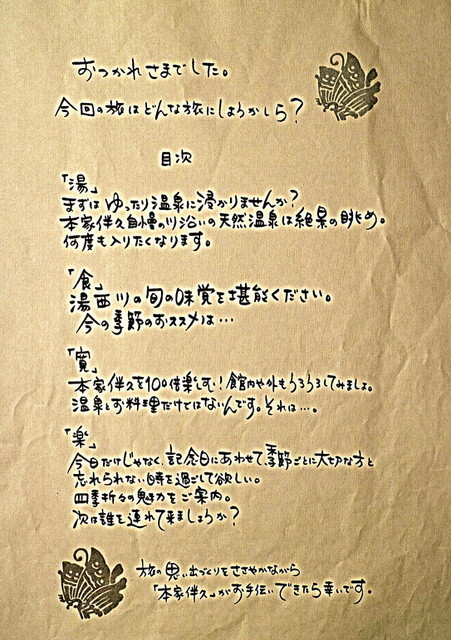 おつかれさまでした。
今回の旅はどんな旅にしようかしら？
目次
「湯」
まずはゆったり温泉に浸かりませんか？
本家伴久自慢の川沿いの天然温泉は絶景の眺め。
何度も入りたくなります。
「食」
湯西川の旬の味覚を堪能ください。
今の季節のおススメは…
「寛」
本家伴久を100倍楽しむ！館内や外もうろうろしてみましょ。
温泉とお料理だけではないんです。それは…。
「楽」
今日だけじゃなく、記念日にあわせて、季節ごとに大切な方と
忘れられない時を過ごして欲しい。
四季折々の魅力をご案内。
次は誰を連れて来ましょうか？
旅の思い出づくりをささやかながら
「本家伴久」がお手伝いできたら幸いです。